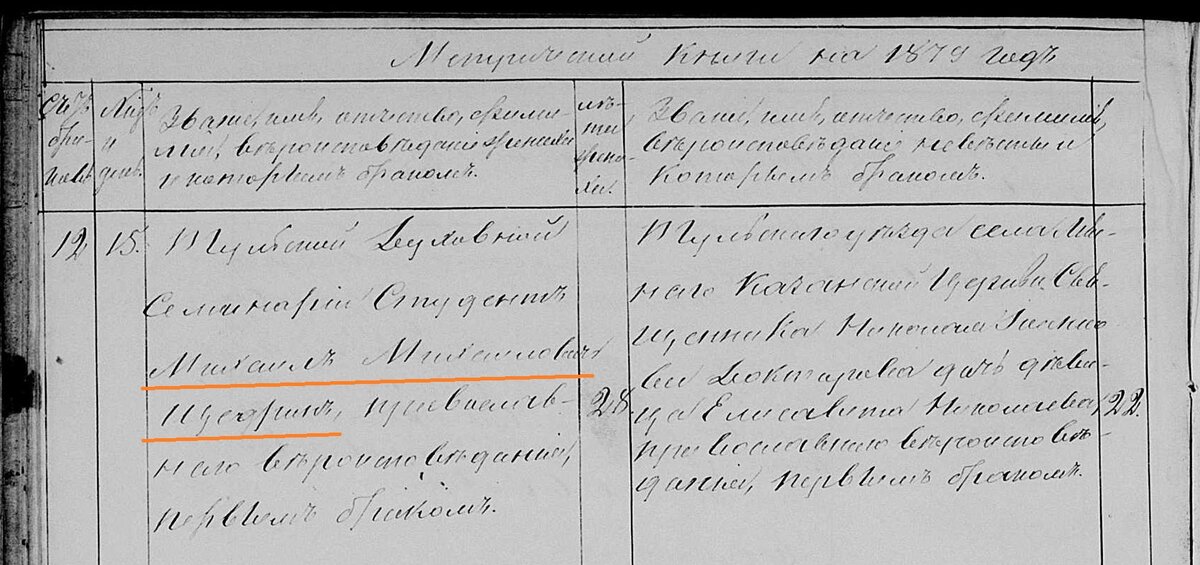 Метрической Книги на 1879 годъ
Счетъ
бра-
ковъ
Мѣс.
и
день.
Званіе, имя, отчество, фами-
лія, вѣроисповѣданіе жениха
и которымъ бракомъ.
лѣ-
та
жени-
ха.
Званіе, имя, отчество, фамилія,
вѣроисповѣданіе невѣсты и
которымъ бракомъ.
12
15.
Тульской Духовной
Семинаріи Студентъ
Михаилъ Михаиловичъ
Щегринъ, православ-
наго вѣроисповѣданія,
первымъ бракомъ.
28.
Тульскаго уѣзда села
наго Казанской Церкви Свя-
щенника Николая
ва Докторова дочь дѣви-
ца Елисавета Николаева,
православнаго вѣроисповѣ-
данія, первымъ бракомъ.
22.